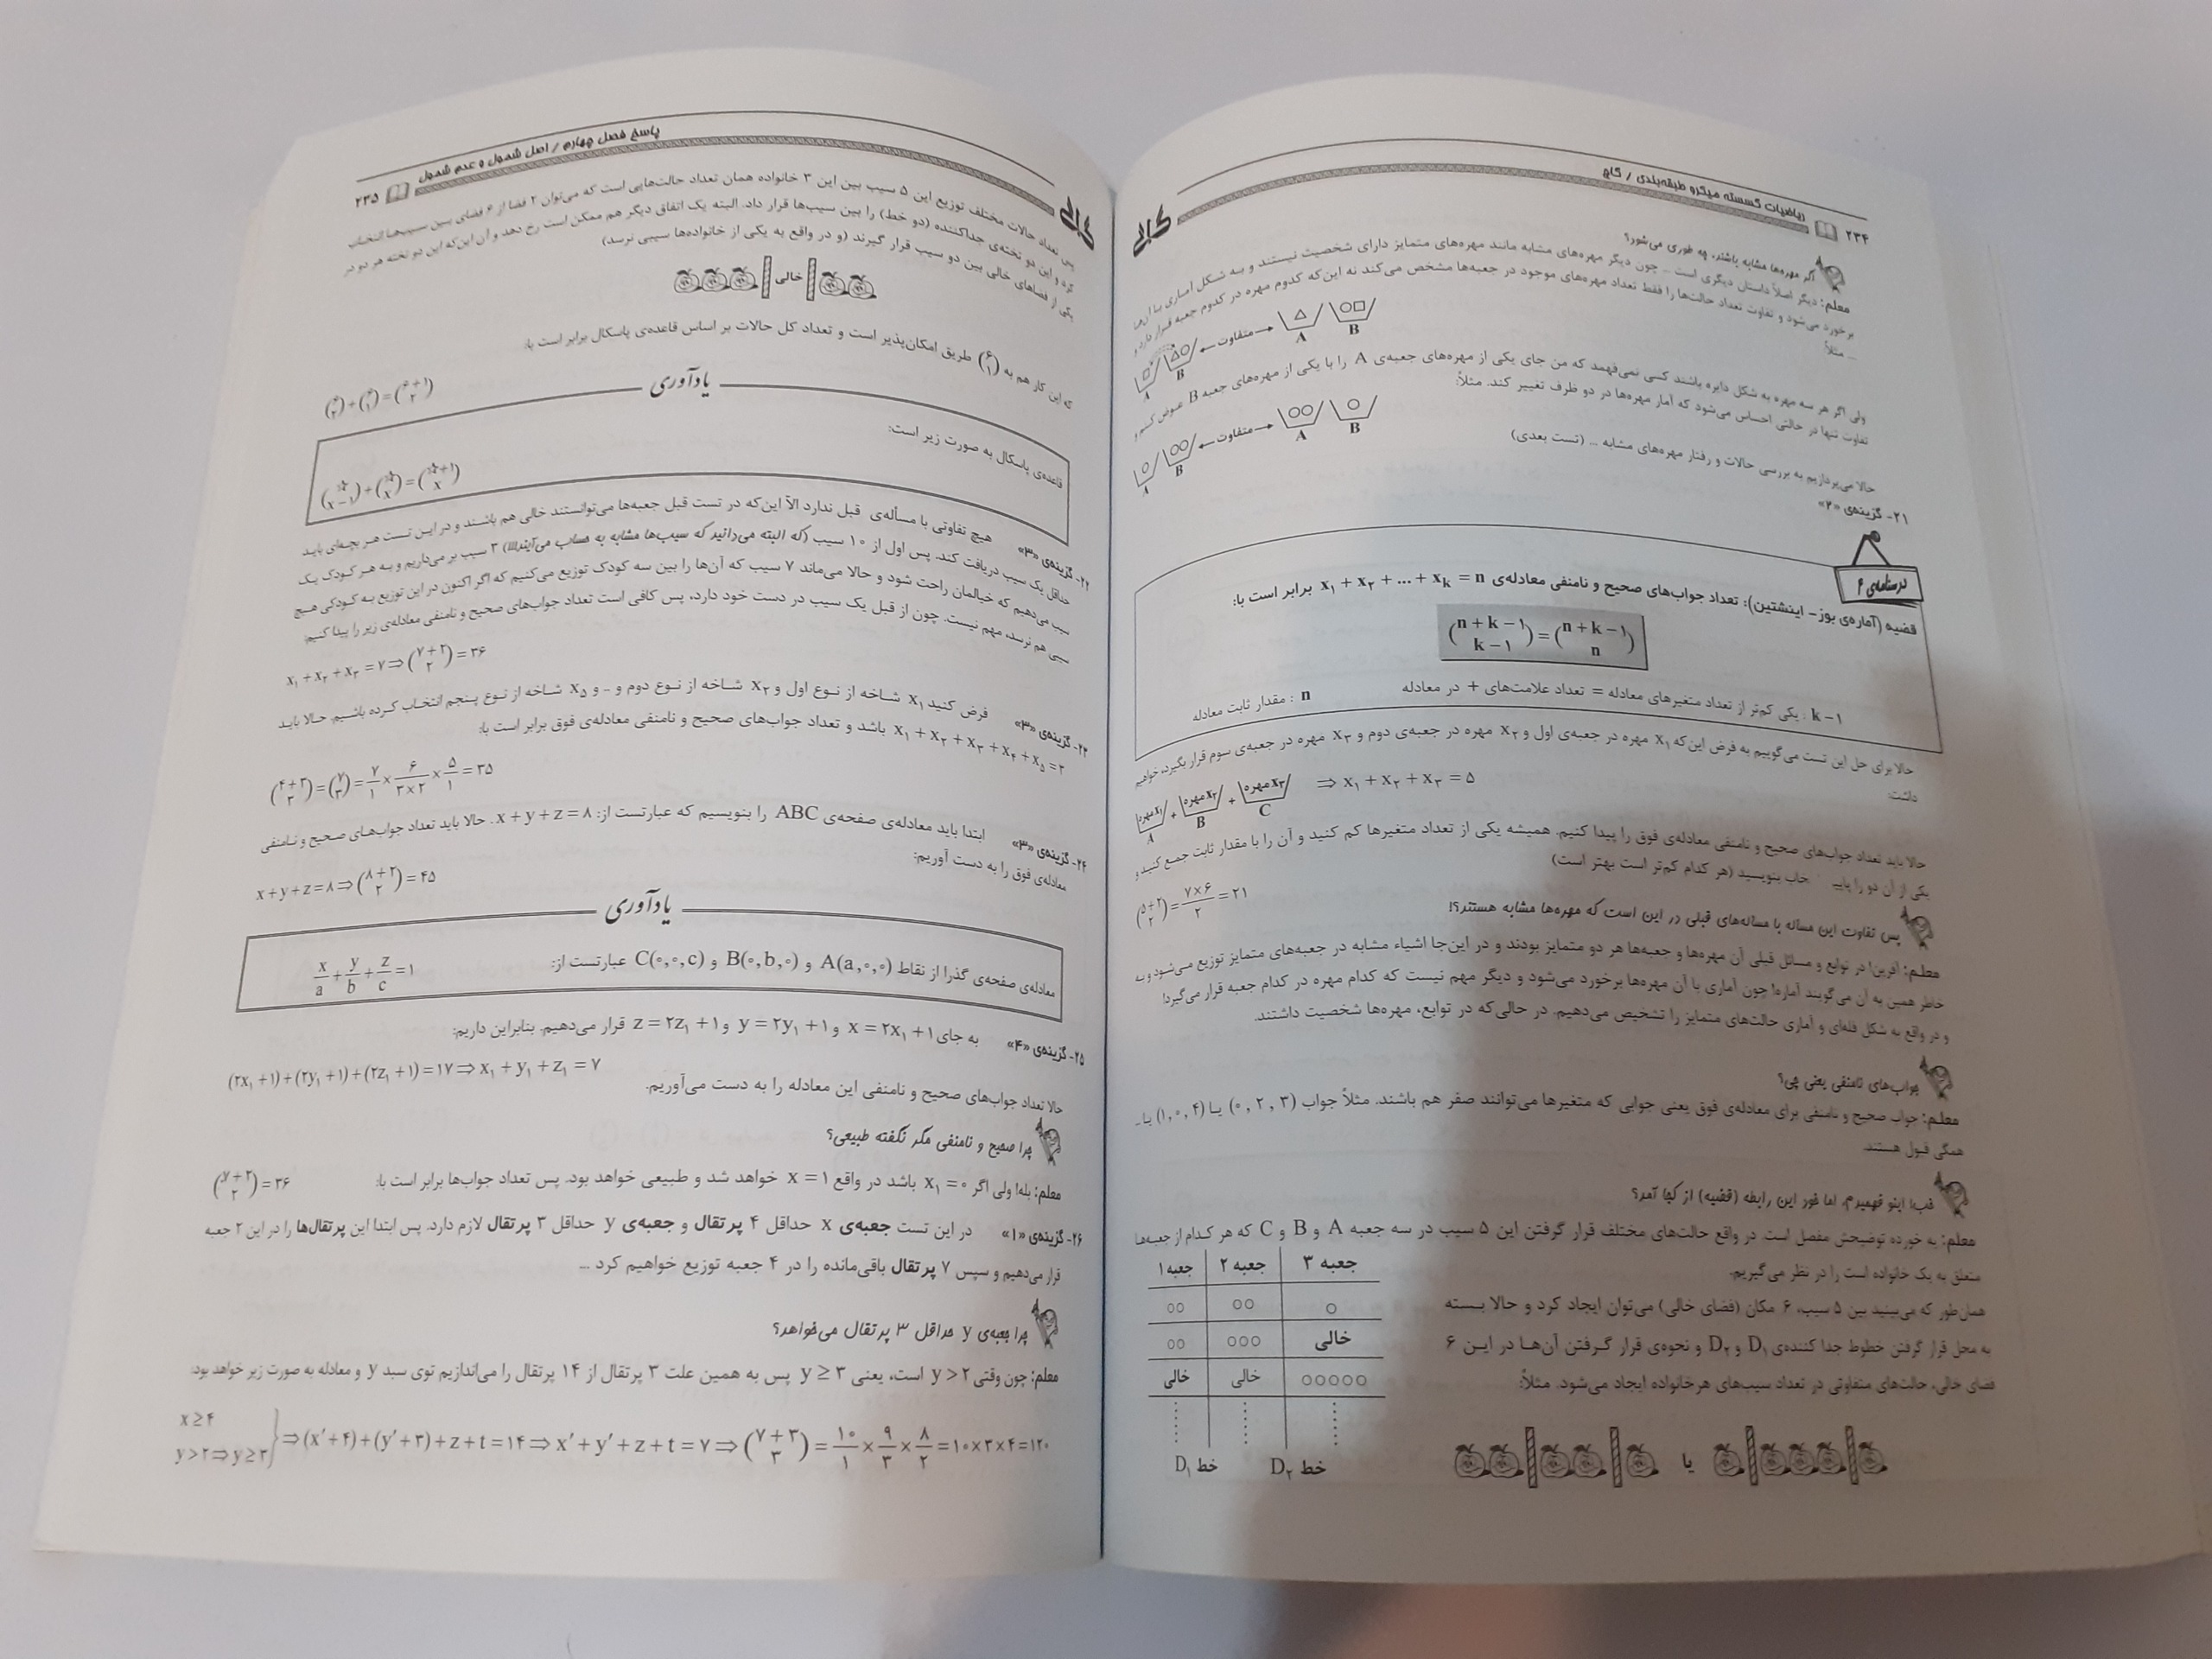 ریاضیات گسسته میکرو طبقه‌بندی / گاج
۲۳۴
اگر مهره‌ها مشابه باشند، چه طوری می‌شود؟
معلم: دیگر اصلاً داستان دیگری است ... چون دیگر مهره‌های مشابه مانند مهره‌های متمایز دارای شخصیت نیستند و به شکل آماری با آن‌ها
برخورد می‌شود و تفاوت تعداد حالت‌ها را فقط تعداد مهره‌های موجود در جعبه‌ها مشخص می‌کند نه این‌که کدوم مهره در کدوم جعبه قرار دارد و
... مثلاً:
A B ←متفاوت→ A B
ولی اگر هر سه مهره به شکل دایره باشند کسی نمی‌فهمد که من جای یکی از مهره‌های جعبه‌ی A را با یکی از مهره‌های جعبه B عوض کنم و
تفاوت تنها در حالتی احساس می‌شود که آمار مهره‌ها در دو ظرف تغییر کند. مثلاً:
A B ←متفاوت→ A B
حالا می‌پردازیم به بررسی حالات و رفتار مهره‌های مشابه ... (تست بعدی)
۲۱- گزینه‌ی «۲»
درسنامه‌ی ۶
قضیه (آماره‌ی بوز- اینشتین): تعداد جواب‌های صحیح و نامنفی معادله‌ی x₁ + x₂ + ... + xₖ = n برابر است با:
(n+k-۱ / k-۱) = (n+k-۱ / n)
k-۱ : یکی کم‌تر از تعداد متغیرهای معادله = تعداد علامت‌های + در معادله n : مقدار ثابت معادله
حالا برای حل این تست می‌گوییم به فرض این‌که x₁ مهره در جعبه‌ی اول و x₂ مهره در جعبه‌ی دوم و x₃ مهره در جعبه‌ی سوم قرار بگیرد، خواهیم
داشت:
x₁مهره + x₂مهره + x₃مهره ⇒ x₁ + x₂ + x₃ = ۵
A B C
حالا باید تعداد جواب‌های صحیح و نامنفی معادله‌ی فوق را پیدا کنیم. همیشه یکی از تعداد متغیرها کم کنید و آن را با مقدار ثابت جمع کنید و
یکی از آن دو را بنویسید (هر کدام کم‌تر است بهتر است)
(۵+۲ / ۲) = ۷×۶ / ۲ = ۲۱
پس تفاوت این مساله با مساله‌های قبلی در این است که مهره‌ها مشابه هستند؟!
معلم: آفرین! در توابع و مسائل قبلی آن مهره‌ها و جعبه‌ها هر دو متمایز بودند و در این‌جا اشیاء مشابه در جعبه‌های متمایز توزیع می‌شود و به
خاطر همین به آن می‌گویند آماره! چون آماری با آن مهره‌ها برخورد می‌شود و دیگر مهم نیست که کدام مهره در کدام جعبه قرار می‌گیرد!
و در واقع به شکل فله‌ای و آماری حالت‌های متمایز را تشخیص می‌دهیم. در حالی‌که در توابع، مهره‌ها شخصیت داشتند.
جواب‌های نامنفی یعنی چی؟
معلم: جواب صحیح و نامنفی برای معادله‌ی فوق یعنی جوابی که متغیرها می‌توانند صفر هم باشند. مثلاً جواب (۰,۲,۳) یا (۱,۰,۴) یا ...
همگی قبول هستند.
خب! اینو فهمیدم، اما خود این رابطه (قضیه) از کجا آمد؟
معلم: یه خورده توضیحش مفصل است. در واقع حالت‌های مختلف قرار گرفتن این ۵ سیب در سه جعبه A و B و C که هر کدام از جعبه‌ها
متعلق به یک خانواده است را در نظر می‌گیریم.
همان‌طور که می‌بینید بین ۵ سیب، ۶ مکان (فضای خالی) می‌توان ایجاد کرد و حالا بسته
به محل قرار گرفتن خطوط جدا کننده‌ی D₁ و D₂ و نحوه‌ی قرار گرفتن آن‌ها در این ۶
فضای خالی، حالت‌های متفاوتی در تعداد سیب‌های هر خانواده ایجاد می‌شود. مثلاً:
جعبه ۱ جعبه ۲ جعبه ۳
○○ ○○ ○
○○ ○○○ خالی
خالی خالی ○○○○○
خط D₁ خط D₂
یا
پاسخ فصل چهارم / اصل شمول و عدم شمول
۲۳۵
پس تعداد حالات مختلف توزیع این ۵ سیب بین این ۳ خانواده همان تعداد حالت‌هایی است که می‌توان ۲ فضا از ۶ فضای بین سیب‌ها انتخاب
کرد و این دو تخته‌ی جداکننده (دو خط) را بین سیب‌ها قرار داد. البته یک اتفاق دیگر هم ممکن است رخ دهد و آن این‌که این دو تخته هر دو در
یکی از فضاهای خالی بین دو سیب قرار گیرند (و در واقع به یکی از خانواده‌ها سیبی نرسد)
خالی
که این کار هم به (۶ / ۱) طریق امکان‌پذیر است و تعداد کل حالات بر اساس قاعده‌ی پاسکال برابر است با:
(۶ / ۲) + (۶ / ۱) = (۶+۱ / ۲)
یادآوری
قاعده‌ی پاسکال به صورت زیر است:
۲۲- گزینه‌ی «۳» هیچ تفاوتی با مسأله‌ی قبل ندارد الّا این‌که در تست قبل جعبه‌ها می‌توانستند خالی هم باشند و در این تست هر بچه‌ای باید
حداقل یک سیب دریافت کند. پس اول از ۱۰ سیب (که البته می‌دانید که سیب‌ها مشابه به حساب می‌آیند!!!) ۳ سیب بر می‌داریم و به هر کودک یک
سیب می‌دهیم که خیالمان راحت شود و حالا می‌ماند ۷ سیب که آن‌ها را بین سه کودک توزیع می‌کنیم که اگر اکنون در این توزیع به کودکی هیچ
سیبی هم نرسد، مهم نیست. چون از قبل یک سیب در دست خود دارد، پس کافی است تعداد جواب‌های صحیح و نامنفی معادله‌ی زیر را پیدا کنیم:
x₁ + x₂ + x₃ = ۷ ⇒ (۷+۲ / ۲) = ۳۶
۲۳- گزینه‌ی «۳» فرض کنید x₁ شاخه از نوع اول و x₂ شاخه از نوع دوم و ... و x₅ شاخه از نوع پنجم انتخاب کرده باشیم. حالا باید
x₁ + x₂ + x₃ + x₄ + x₅ = ۳ باشد و تعداد جواب‌های صحیح و نامنفی معادله‌ی فوق برابر است با:
(۴+۳ / ۳) = (۷ / ۳) = ۷/۱ × ۶/۳×۲ × ۵/۱ = ۳۵
۲۴- گزینه‌ی «۳» ابتدا باید معادله‌ی صفحه‌ی ABC را بنویسیم که عبارتست از: x+y+z=۸. حالا باید تعداد جواب‌های صحیح و نامنفی
معادله‌ی فوق را به دست آوریم:
x+y+z=۸ ⇒ (۸+۲ / ۲) = ۴۵
یادآوری
معادله‌ی صفحه‌ی گذرا از نقاط A(a,۰,۰) و B(۰,b,۰) و C(۰,۰,c) عبارتست از: x/a + y/b + z/c = ۱
۲۵- گزینه‌ی «۴» به جای x = ۲x₁+۱ و y = ۲y₁+۱ و z = ۲z₁+۱ قرار می‌دهیم. بنابراین داریم:
(۲x₁+۱)+(۲y₁+۱)+(۲z₁+۱)=۱۷ ⇒ x₁+y₁+z₁ = ۷
حالا تعداد جواب‌های صحیح و نامنفی این معادله را به دست می‌آوریم.
چرا صحیح و نامنفی مگر نگفته طبیعی؟
معلم: بله! ولی اگر x₁ = ۰ باشد در واقع x = ۱ خواهد شد و طبیعی خواهد بود. پس تعداد جواب‌ها برابر است با: (۷+۲ / ۲) = ۳۶
۲۶- گزینه‌ی «۱» در این تست جعبه‌ی x حداقل ۴ پرتقال و جعبه‌ی y حداقل ۳ پرتقال لازم دارد. پس ابتدا این پرتقال‌ها را در این ۲ جعبه
قرار می‌دهیم و سپس ۷ پرتقال باقی‌مانده را در ۴ جعبه توزیع خواهیم کرد ...
چرا جعبه‌ی y حداقل ۳ پرتقال می‌خواهد؟
معلم: چون وقتی y > ۲ است، یعنی y ≥ ۳ پس به همین علت ۳ پرتقال از ۱۴ پرتقال را می‌اندازیم توی سبد y و معادله به صورت زیر خواهد بود:
x ≥ ۴
y > ۲ ⇒ y ≥ ۳ } ⇒ (x′+۴)+(y′+۳)+z+t=۱۴ ⇒ x′+y′+z+t=۷ ⇒ (۷+۳ / ۳) = ۱۰/۱ × ۹/۳ × ۸/۲ = ۱۰×۳×۴=۱۲۰